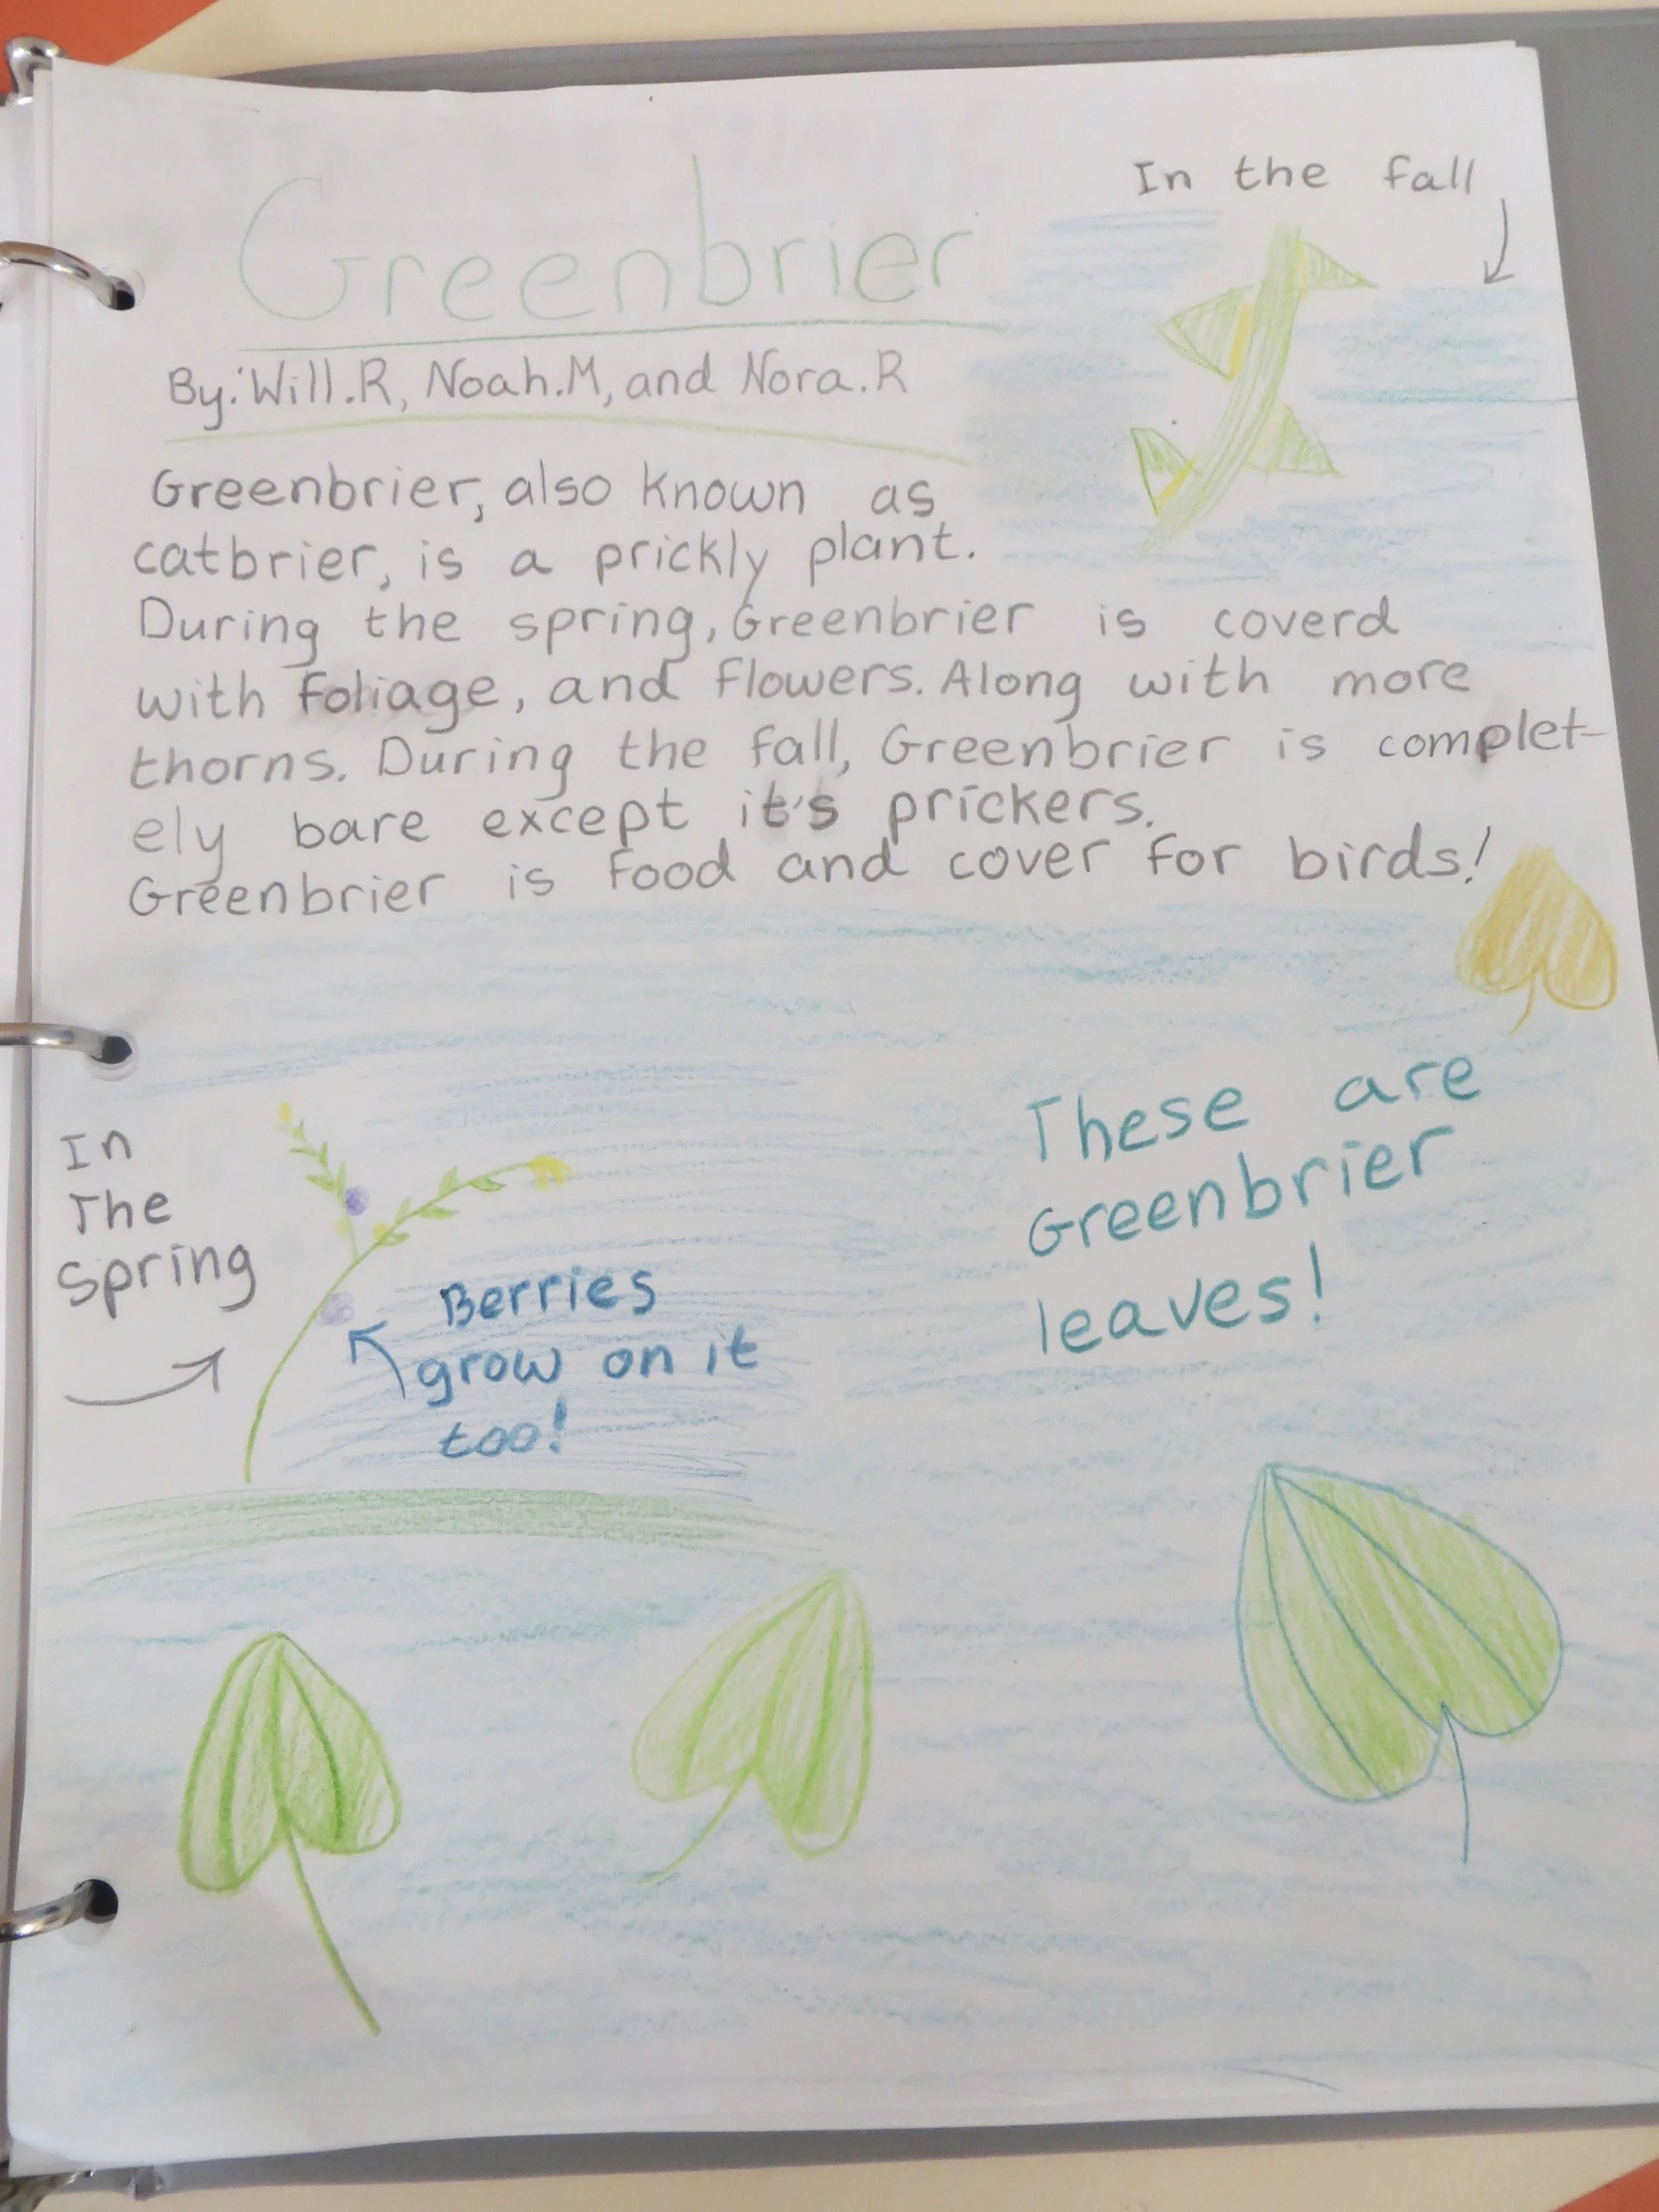 Greenbrier
In the fall
By: Will.R, Noah.M, and Nora.R
Greenbrier, also known as
catbrier, is a prickly plant.
During the spring, Greenbrier is coverd
with foliage, and flowers. Along with more
thorns. During the fall, Greenbrier is complet-
ely bare except it's prickers.
Greenbrier is food and cover for birds!
In
The
Spring
Berries
grow on it
too!
These are
Greenbrier
leaves!